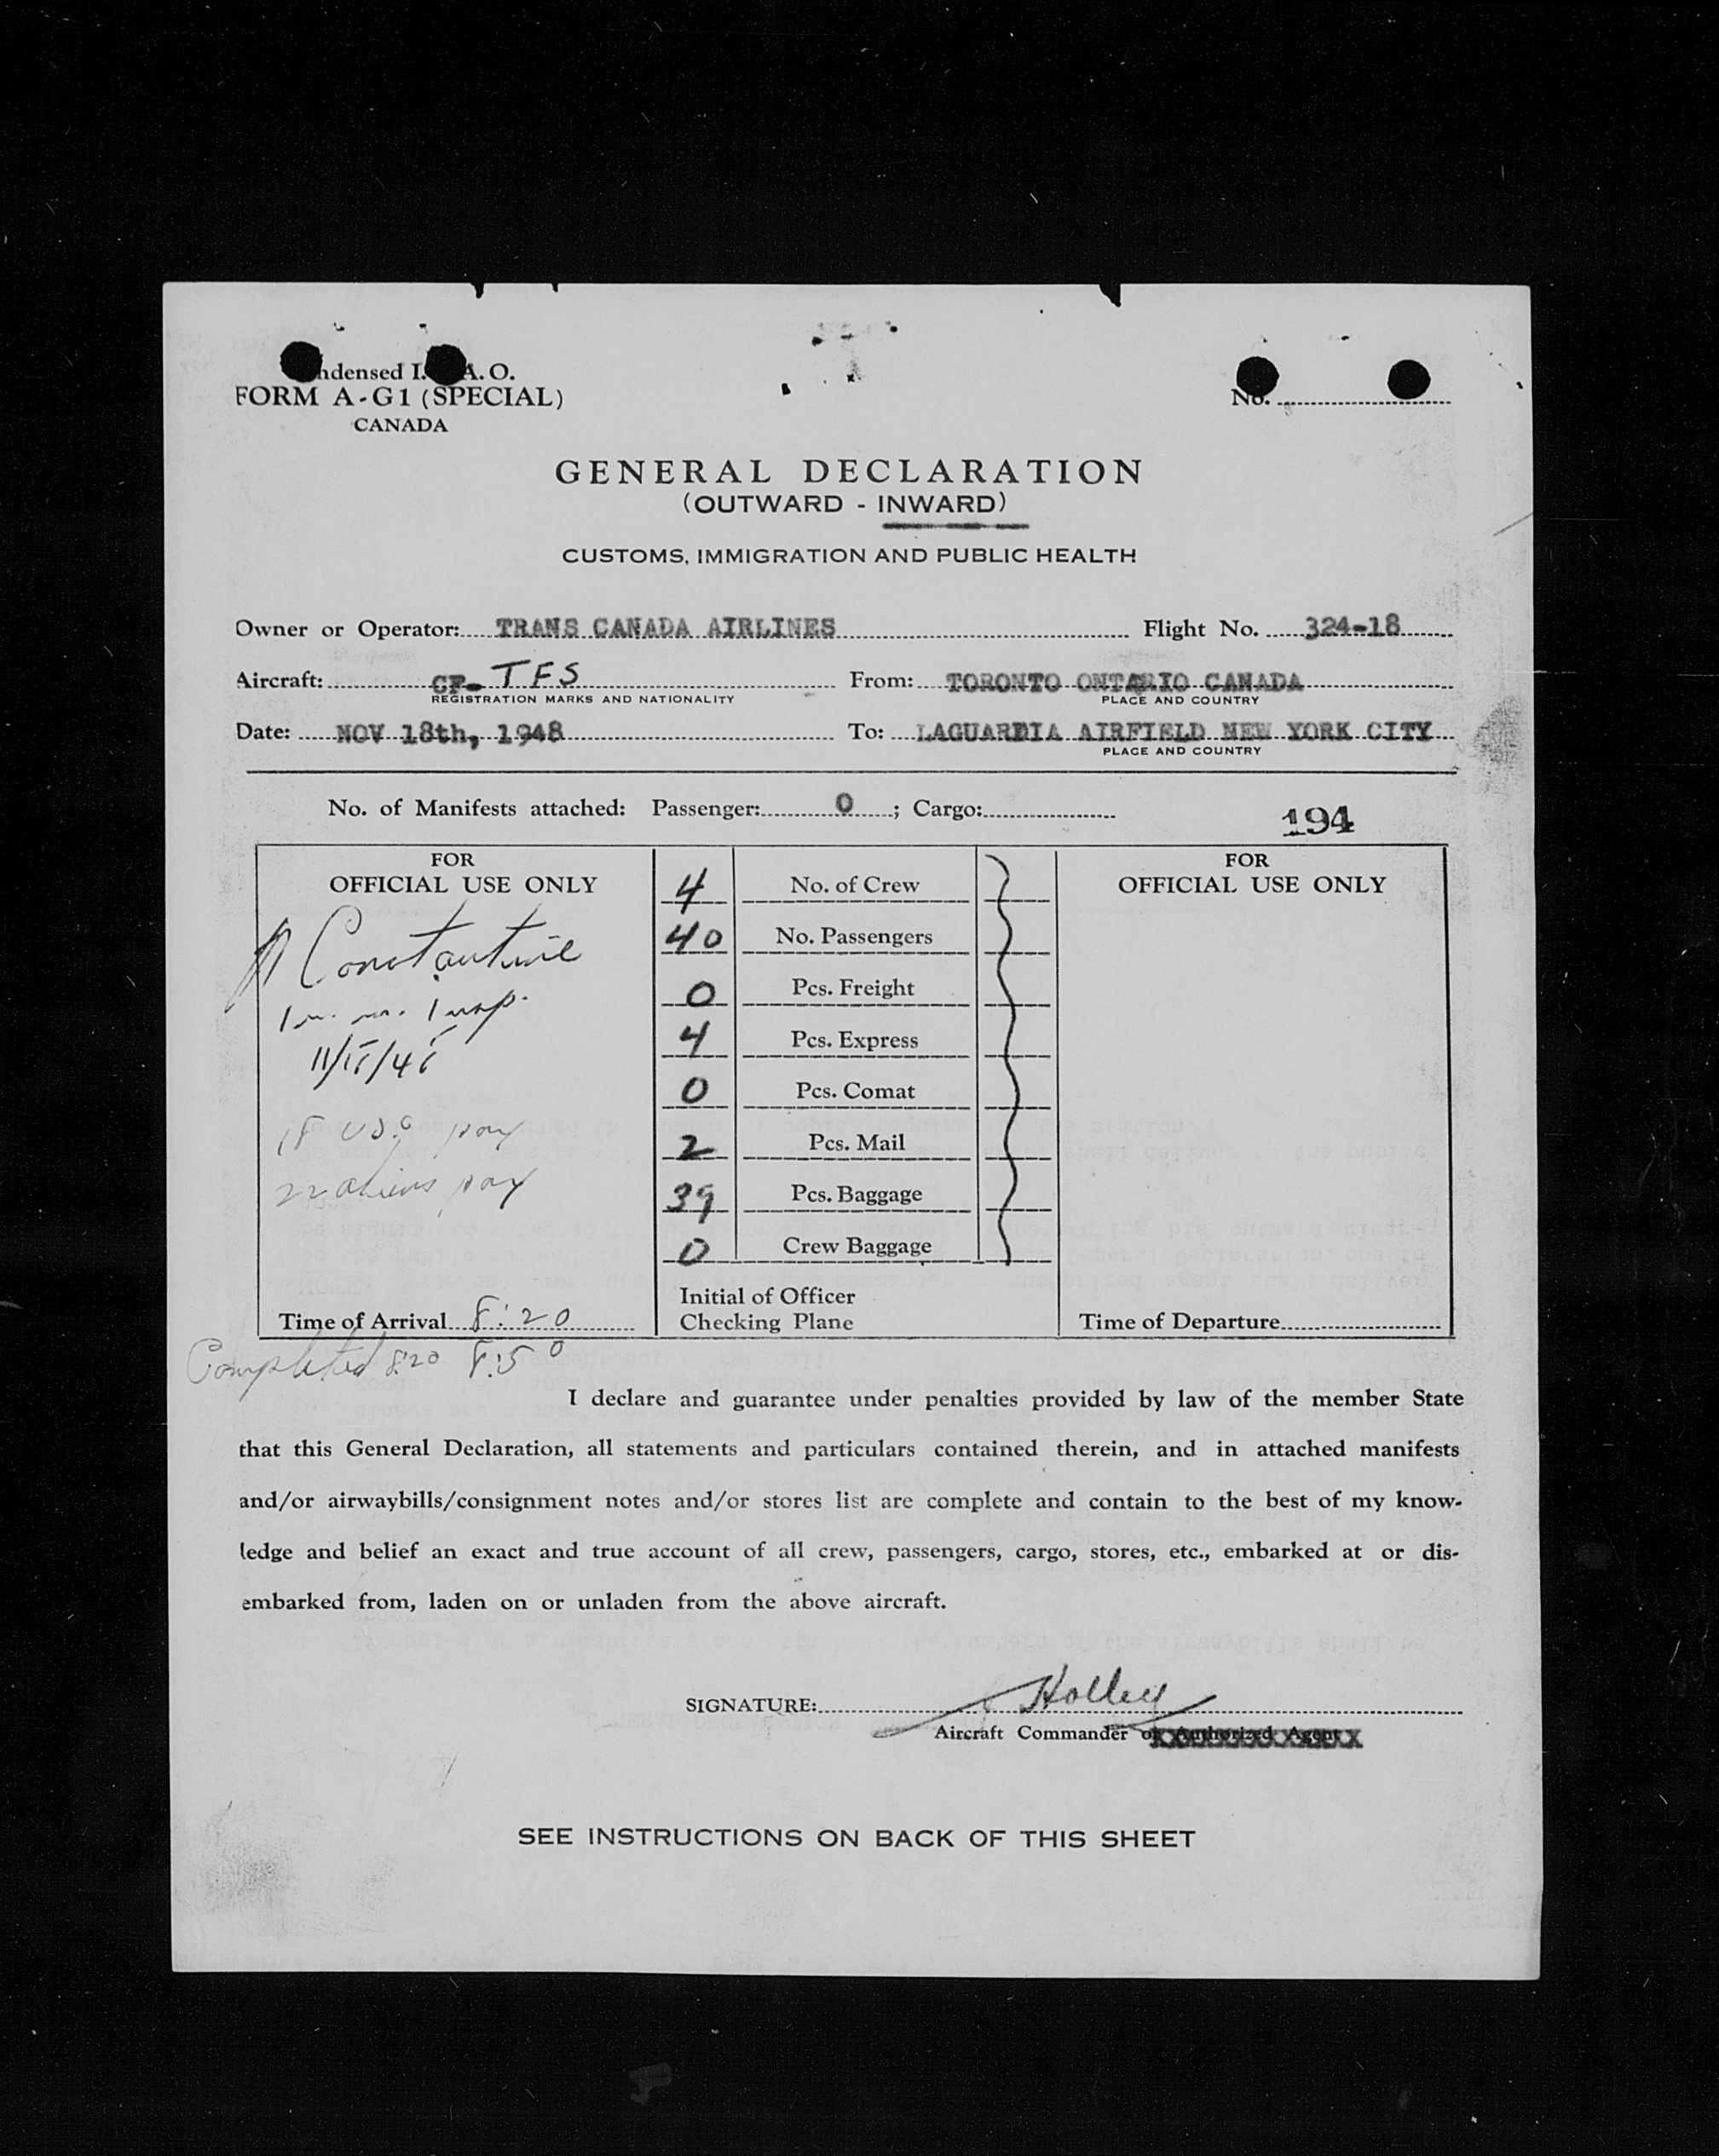 ndensed I. A.O.
FORM A-G1 (SPECIAL)
CANADA
No.
GENERAL DECLARATION
(OUTWARD - INWARD)
CUSTOMS, IMMIGRATION AND PUBLIC HEALTH
Owner or Operator: TRANS CANADA AIRLINES Flight No. 324-18
Aircraft: CF- TFS From: TORONTO ONTARIO CANADA
REGISTRATION MARKS AND NATIONALITY PLACE AND COUNTRY
Date: NOV 18th, 1948 To: LAGUARDIA AIRFIELD NEW YORK CITY
PLACE AND COUNTRY
No. of Manifests attached: Passenger: 0 ; Cargo:
194
FOR
OFFICIAL USE ONLY
Constantine
Imm. Insp.
11/18/48
18 USC pay
22 aliens pay
Time of Arrival 8:20
4 No. of Crew
40 No. Passengers
0 Pcs. Freight
4 Pcs. Express
0 Pcs. Comat
2 Pcs. Mail
39 Pcs. Baggage
0 Crew Baggage
Initial of Officer
Checking Plane
FOR
OFFICIAL USE ONLY
Time of Departure
Completed 8:20 8:50
I declare and guarantee under penalties provided by law of the member State
that this General Declaration, all statements and particulars contained therein, and in attached manifests
and/or airwaybills/consignment notes and/or stores list are complete and contain to the best of my know-
ledge and belief an exact and true account of all crew, passengers, cargo, stores, etc., embarked at or dis-
embarked from, laden on or unladen from the above aircraft.
SIGNATURE: Holley
Aircraft Commander or Authorized Agent
SEE INSTRUCTIONS ON BACK OF THIS SHEET